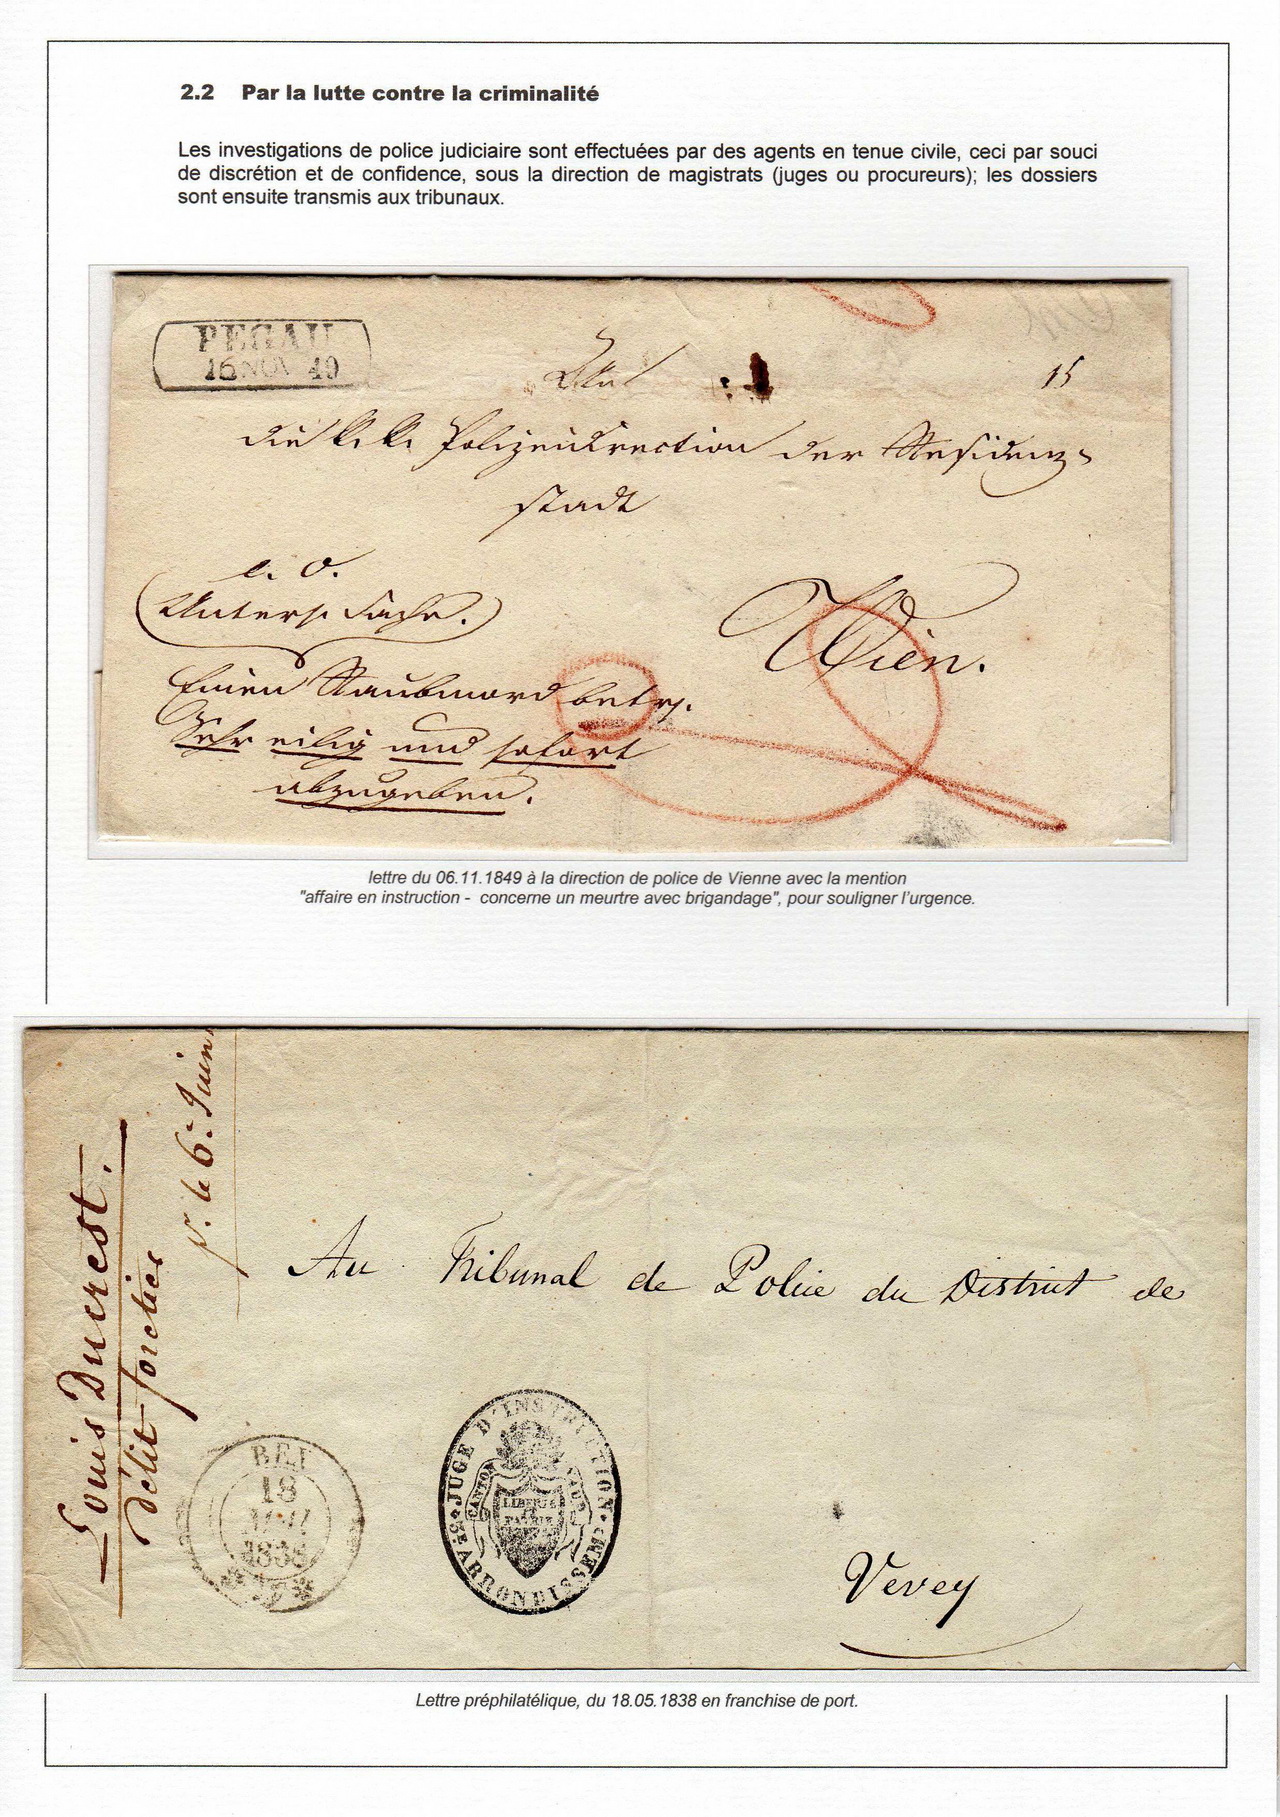 2.2 Par la lutte contre la criminalité
Les investigations de police judiciaire sont effectuées par des agents en tenue civile, ceci par souci
de discrétion et de confidence, sous la direction de magistrats (juges ou procureurs); les dossiers
sont ensuite transmis aux tribunaux.
PEGAU
16 NOV 49
An
15
die k. k. Polizeidirection der Residenz-
stadt
Wien.
Unters. Sache.
Einen Raubmord betr.
Sehr eilig und sofort
abzugeben.
lettre du 06.11.1849 à la direction de police de Vienne avec la mention
"affaire en instruction - concerne un meurtre avec brigandage", pour souligner l'urgence.
Louis Ducrest.
délit forestier
pr. le 6e Juin
Au Tribunal de Police du District de
Vevey
BEX
18
MAI
1838
JUGE D'INSTRUCTION
ARRONDISSEM
CANTON DE VAUD
LIBERTÉ
ET
PATRIE
Lettre préphilatélique, du 18.05.1838 en franchise de port.